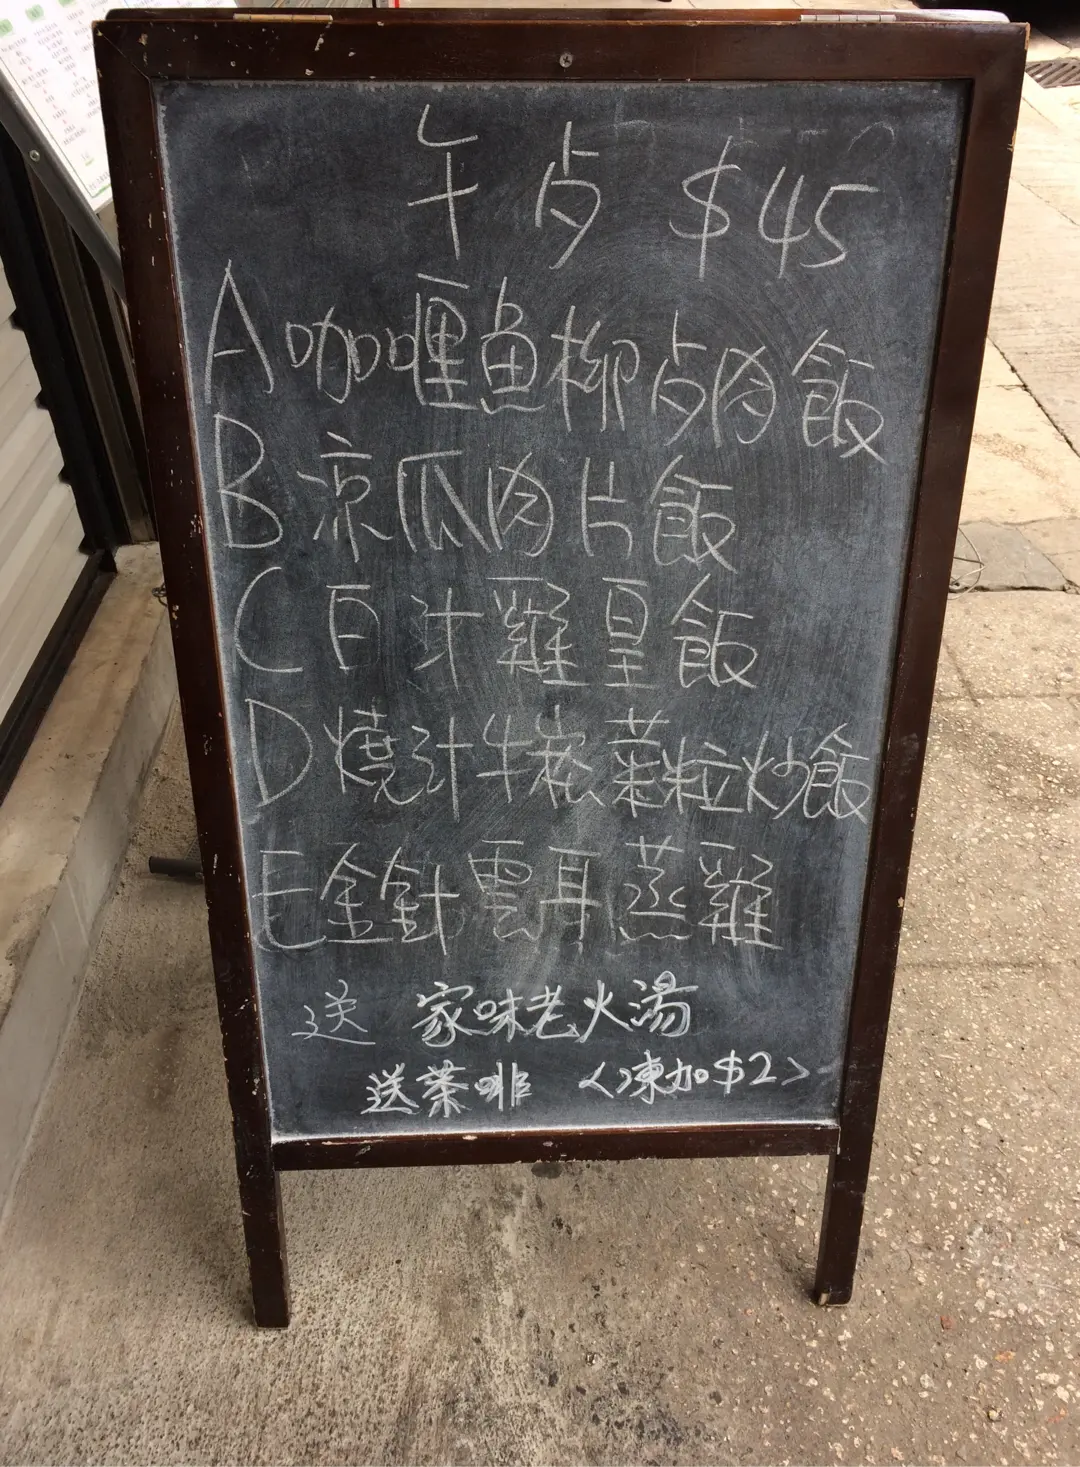 午歺 $45
A咖喱魚柳歺肉飯
B涼瓜肉片飯
C白汁雞皇飯
D燒汁牛崧菜粒炒飯
E金針雲耳蒸雞
送 家味老火湯
送茶啡 <凍加$2>